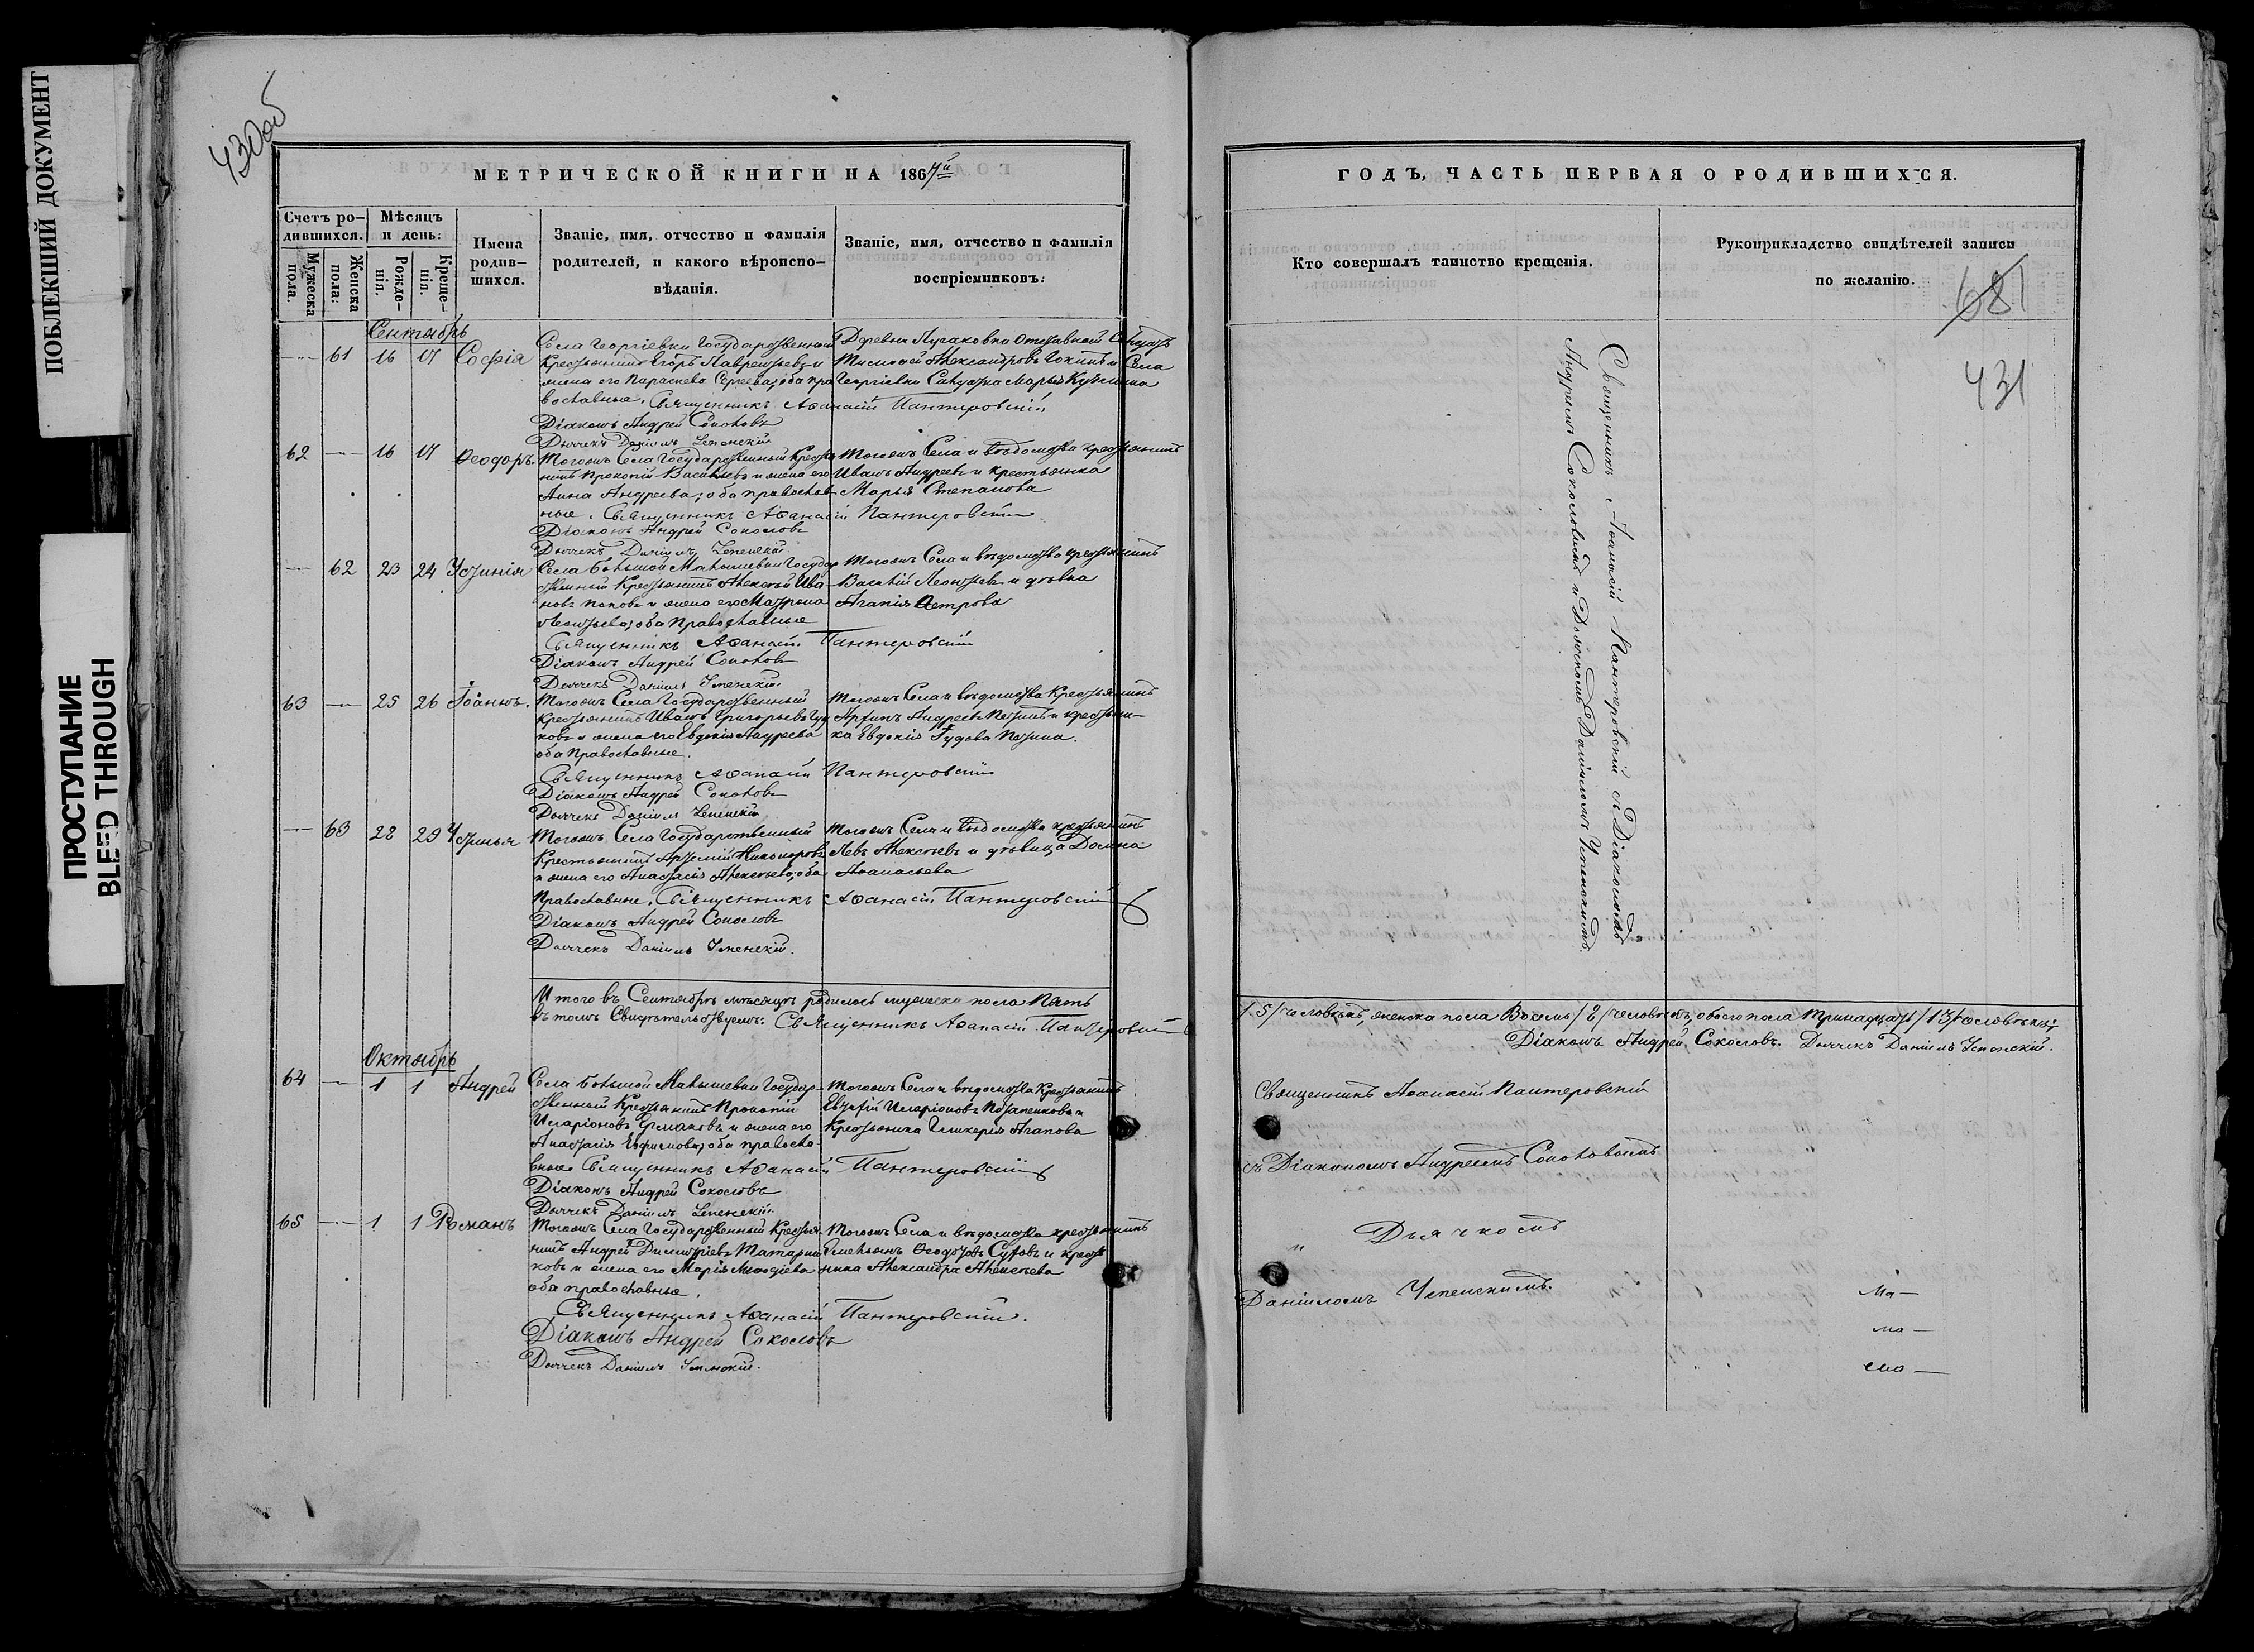 ПОБЛЕКШИЙ ДОКУМЕНТ
ПРОСТУПАНИЕ
BLEED THROUGH
430об
МЕТРИЧЕСКОЙ КНИГИ НА 1867й
Счетъ ро-
дившихся.
Мужеска
пола.
Женска
пола.
Мѣсяцъ
и день:
Рожде-
нія.
Креще-
нія.
Имена
родив-
шихся.
Званіе, имя, отчество и фамилія
родителей, и какого вѣроиспо-
вѣданія.
Званіе, имя, отчество и фамилія
воспріемниковъ.
Сентябрь
61 16 17 Софія
Села Георгіевки Государственный
Крестьянинъ Егоръ Лаврентьевъ и
жена его Параскева Сергеева; оба пра
вославные.
Деревни Отставной Солдатъ
Александровъ и Села
Георгіевки Солдатка Марья
Священникъ Аѳанасій Пантеровскій
Діаконъ Андрей Соколовъ
Дьячекъ Даніилъ
62 16 17 Ѳеодоръ.
Тогожъ Села Государственный Кресть
нинъ Прокопій Васильевъ и жена его
Анна Андреева; оба православ
ные.
Тогожъ Села и вѣдомства крестьянинъ
Иванъ Андреевъ и крестьянка
Марья Степанова
Священникъ Аѳанасій Пантеровскій
Діаконъ Андрей Соколовъ
Дьячекъ Даніилъ
62 23 24 Устинія
Села Большой Малышевки Государ
ственный Крестьянинъ Алексѣй Ива
новъ Поповъ и жена его Матрона
Леонтьева; оба Православные
Тогожъ Села и вѣдомства крестьянинъ
Василій Леонтьевъ и дѣвка
Агапія Петрова
Священникъ Аѳанасій Пантеровскій
Діаконъ Андрей Соколовъ
Дьячекъ Даніилъ
63 25 26 Іоаннъ.
Тогожъ Села Государственный
Крестьянинъ Иванъ Григорьевъ
ковъ и жена его Евдокія Андреева
оба Православные.
Тогожъ Села и вѣдомства Крестьянинъ
Андреевъ и крестьян-
ка Евдокія
Священникъ Аѳанасій Пантеровскій
Діаконъ Андрей Соколовъ
Дьячекъ Даніилъ
63 28 29 Устинья
Тогожъ Села Государственный
Крестьянинъ Артемій Никоноровъ
и жена его Анастасія Алексѣева; оба
Православные.
Тогожъ Села и вѣдомства крестьянинъ
Левъ Алексѣевъ и дѣвица Домна
Аѳанасьева
Священникъ Аѳанасій Пантеровскій
Діаконъ Андрей Соколовъ
Дьячекъ Даніилъ
Итого въ Сентябрѣ мѣсяцѣ родилось мужеска пола Пять
въ томъ Свидѣтельствуемъ: Священникъ Аѳанасій Пантеровскій
Октябрь
64 1 1 Андрей
Села Большой Малышевки Государ-
ственный Крестьянинъ Прокопій
Иларіоновъ Ермаковъ и жена его
Анастасія Евфимова; оба правосла-
вные
Тогожъ Села и вѣдомства Крестьянинъ
Иларіоновъ и
Крестьянка Гликерія Агапова
Священникъ Аѳанасій Пантеровскій
Діаконъ Андрей Соколовъ
Дьячекъ Даніилъ
65 1 1 Романъ
Тогожъ Села Государственный Крестья
нинъ Андрей Димитріевъ Татарни
ковъ и жена его Марія
оба православные.
Тогожъ Села и вѣдомства крестьянинъ
Емельянъ Ѳеодоровъ и кресть
янка Александра Алексѣева
Священникъ Аѳанасій Пантеровскій.
Діаконъ Андрей Соколовъ
Дьячекъ Даніилъ
ГОДЪ, ЧАСТЬ ПЕРВАЯ О РОДИВШИХСЯ.
Кто совершалъ таинство крещенія.
Рукоприкладство свидѣтелей записи
по желанію.
681
431
Священникъ Аѳанасій Пантеровскій съ Діакономъ
Андреемъ Соколовымъ и Дьячкомъ Даніиломъ
/5/ человѣкъ, женска пола Восемь /8/ человѣкъ, обоего пола тринадцать /13/ человѣкъ;
Діаконъ Андрей Соколовъ. Дьячекъ Даніилъ
Священникъ Аѳанасій Пантеровскій
съ Діакономъ Андреемъ Соколовымъ
и Дьячкомъ
Даніиломъ